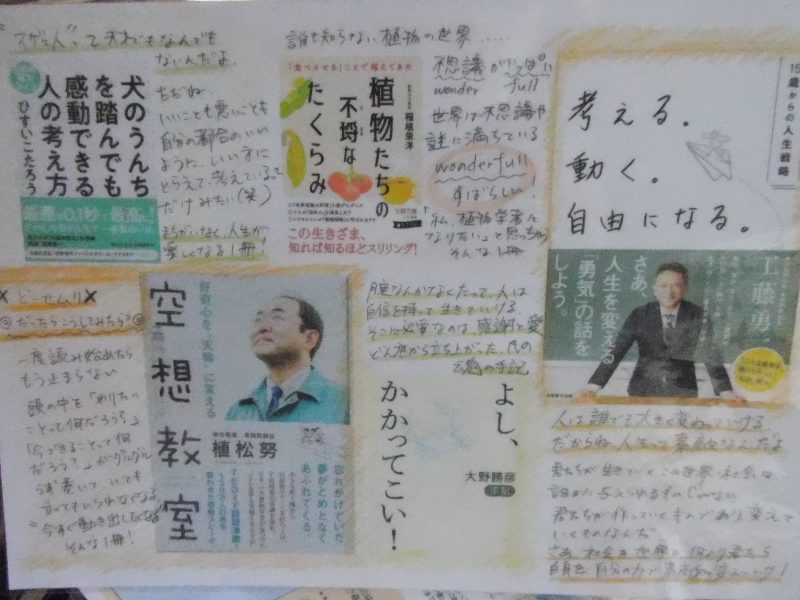 "スゲェ人"って天才でもなんでも
ないんだよ。
ただね、
いいことも悪いことも
自分の都合のいい
ように、いい方に
とらえて、考えているって
だけみたい(笑)
まちがいなく、人生が
楽しくなる1冊!
犬のうんち
を踏んでも
感動できる
人の考え方
ひすいこたろう
誰も知らない植物の世界.....
「食べさせる」ことで増えてきた
植物たちの
不埒な
たくらみ
稲垣栄洋
この生きざま、
知れば知るほどスリリング!
不思議がいっぱい
wonder full
世界は不思議や
謎に満ちている
wonderfull
すばらしい!
「私、植物学者に
なりたい」と思っちゃう
そんな1冊
15歳からの人生戦略
考える。
動く。
自由になる。
工藤勇一
人生を変える
「勇気」の話を
しよう。
さあ、
どーせムリ
だったらこうしてみたら?
一度読み始めたら
もう止まらない
頭の中を「やりたい
ことって何だろう?」
「今できることって何
だろう?」がグルグル
うず巻いて、いても
立ってもいられなくなる
今すぐ動き出したくなる
そんな1冊!
好奇心を"天職"に変える
空想教室
植松努
忘れかけていた
夢がとめどなく
あふれてくる。
腕なんかなくたって、人は
自信を持って生きていける
そこに必要なのは感謝と愛
どん底から立ち上がった氏の
魂の手記
よし、
かかってこい!
大野勝彦
手記
人は誰でも大きく変わっていける
だからね人生って素敵なんだよ
君たちが生きていくこの世界・社会は
誰かに与えられるものじゃない
君たちが作っていくものであり、変えて
いくものなんだ
さあ、社会を世界を何より君たち
自身を自分の力で